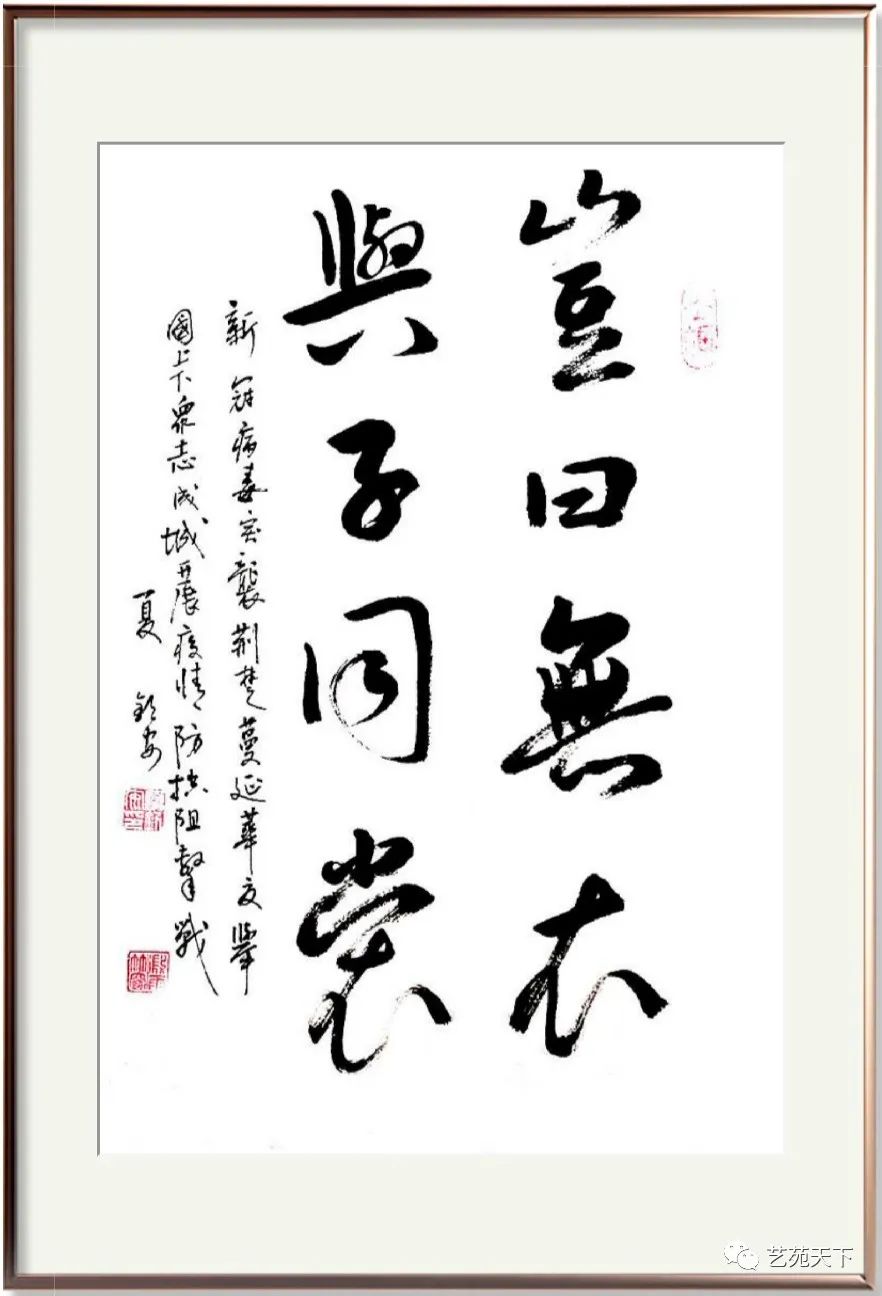 豈曰無衣
與子同裳
新冠病毒突襲荆楚蔓延華夏舉
國上下衆志成城开展疫情防控阻擊戰
夏
艺苑天下